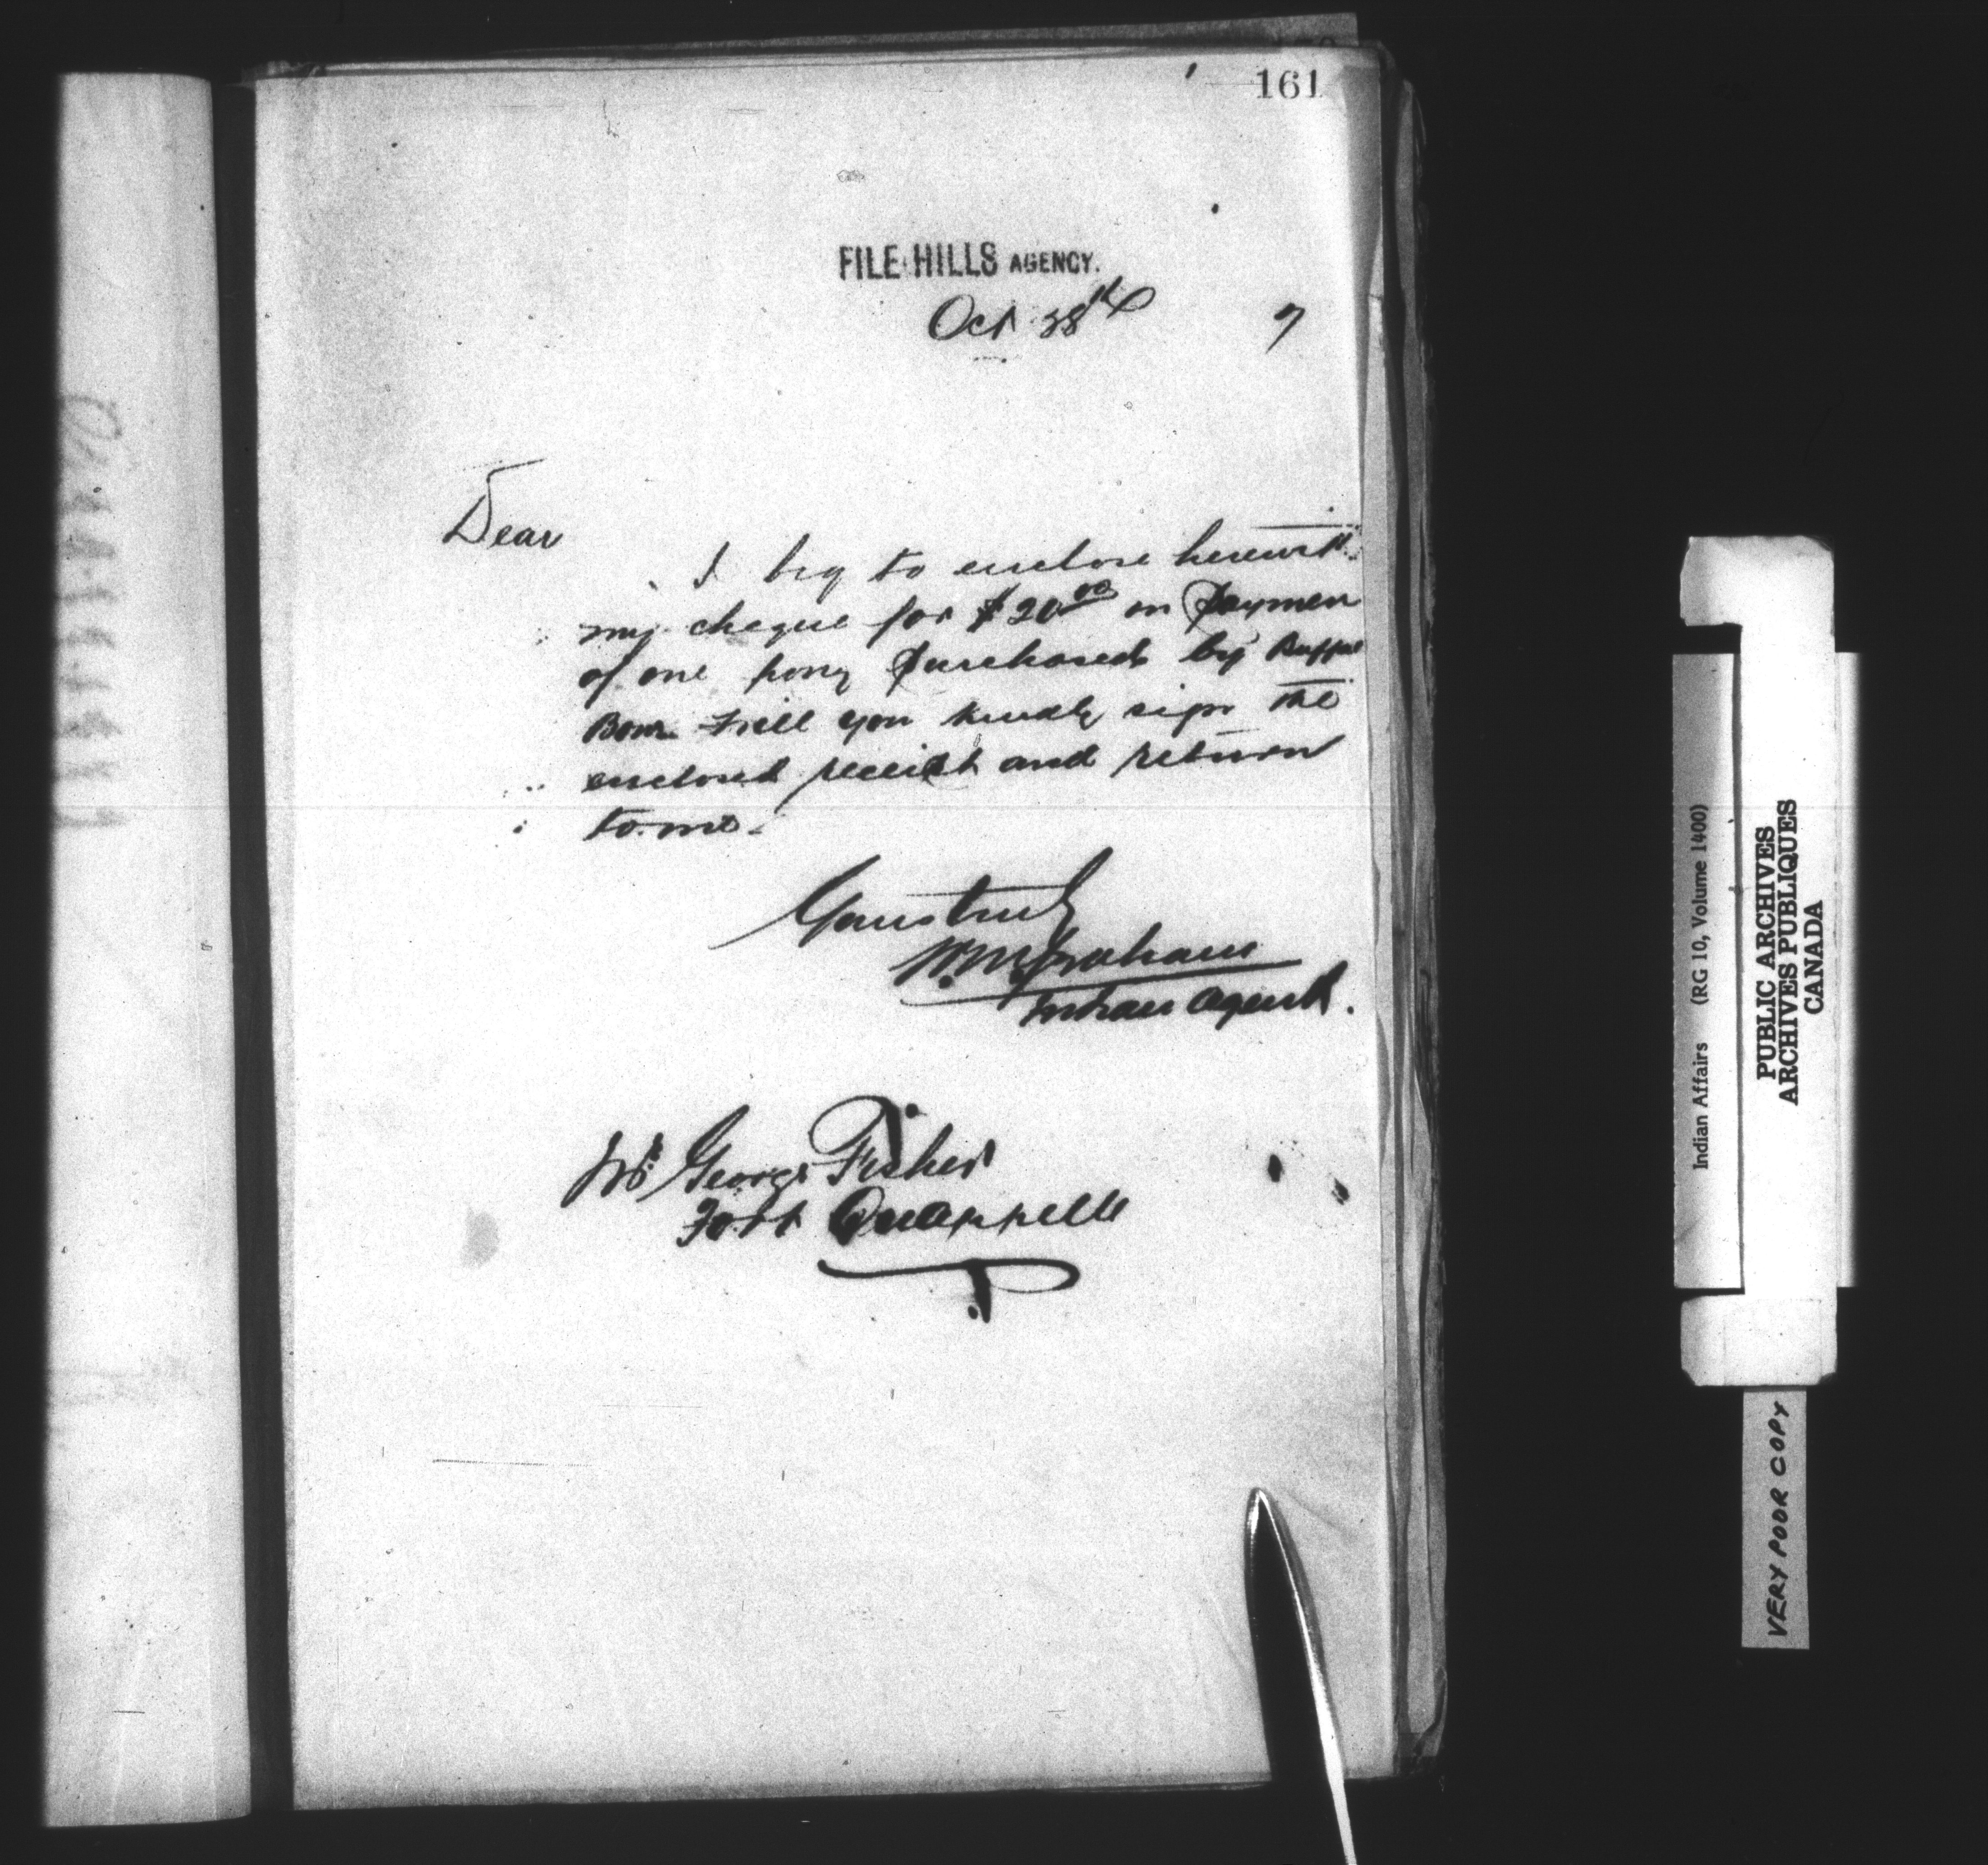 161
FILE HILLS AGENCY.
Oct 28th 7
Dear
I beg to enclose herewith
my cheque for $20.00 in paymen
of one pony purchased by Buffal
Bow. Will you kindly sign the
enclosed receipt and return
to me.
Yours truly
W.M. Graham
Indian Agent.
Mr George Fisher
Fort Quappelle
Indian Affairs (RG 10, Volume 1400)
PUBLIC ARCHIVES
ARCHIVES PUBLIQUES
CANADA
VERY POOR COPY